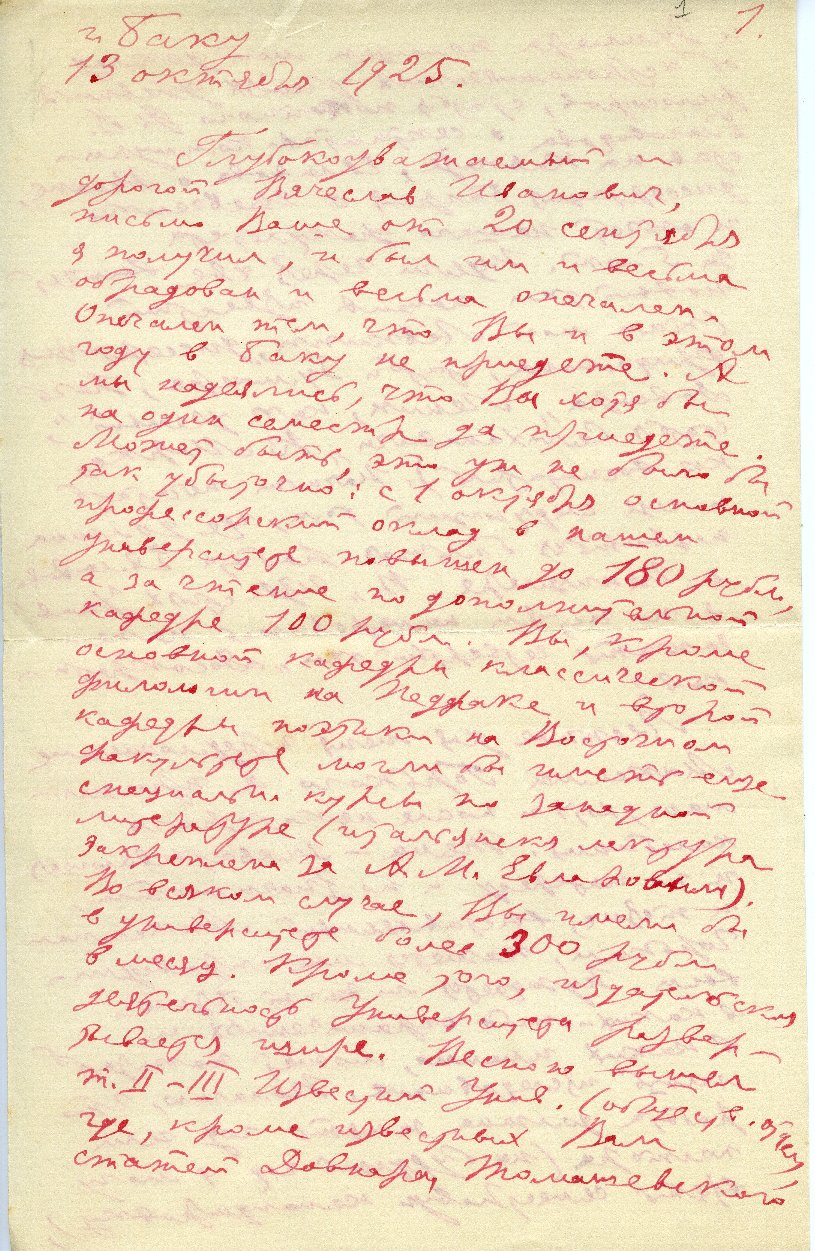 1
1.
г. Баку
13 октября 1925.
Глубокоуважаемый и
дорогой Вячеслав Иванович,
письмо Ваше от 20 сентября
я получил, и был им и весьма
обрадован и весьма опечален.
Опечален тем, что Вы и в этом
году в Баку не приедете. А
мы надеялись, что Вы хотя бы
на один семестр да приедете.
Может быть, это уж не было бы
так убыточно: с 1 октября основной
профессорский оклад в нашем
университете повышен до 180 рубл.,
а за чтение по дополнительной
кафедре 100 рубл. Вы, кроме
основной кафедры классической
филологии на Педфаке и второй
кафедры поэтики на Восточном
факультете могли бы иметь еще
специальн. курсы по западной
литературе (итальянская лектура
закреплена за А. М. Евлаховым).
Во всяком случае, Вы имели бы
в университете более 300 рубл.
в месяц. Кроме того, издательская
деятельность Университета развер-
тывается шире. Весною вышел
т. II–III Известий Унив. (обществ. отдел),
где, кроме известных Вам
статей Довнара, Томашевского